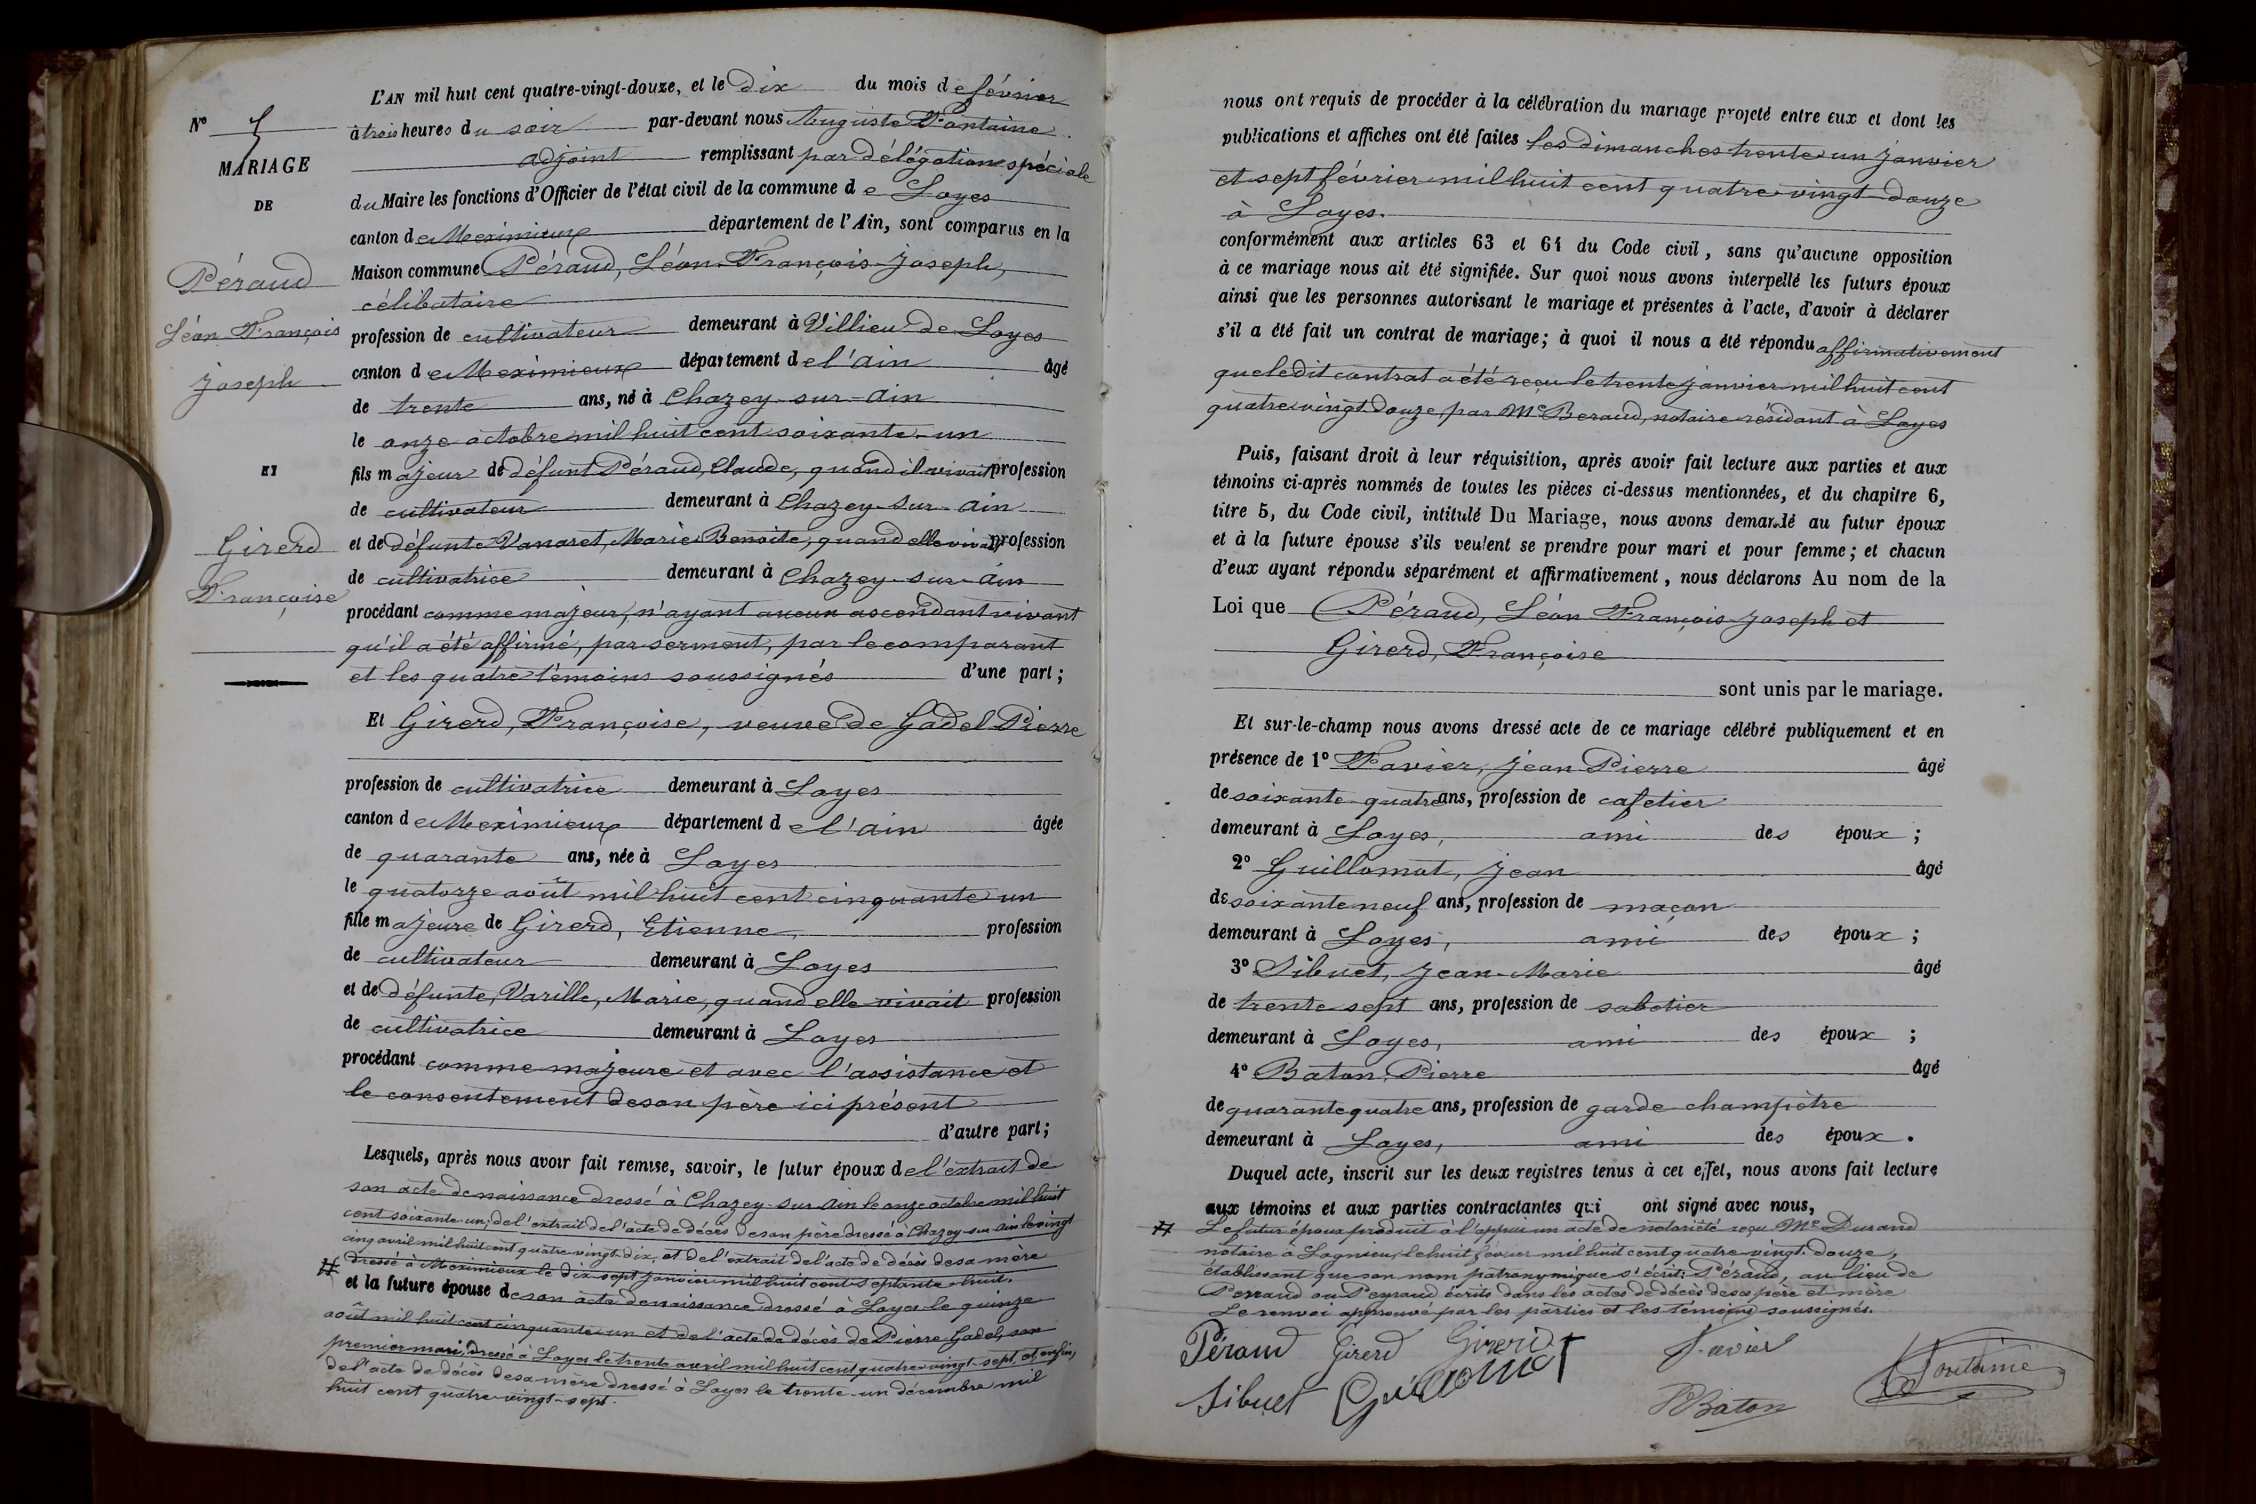 N° 5
MARIAGE
DE
Péraud
Léon François
Joseph
ET
Girerd
Françoise
L'AN mil huit cent quatre-vingt-douze, et le dix du mois de février
à trois heures du soir par-devant nous Auguste Fontaine
adjoint remplissant par délégation spéciale
du Maire les fonctions d'Officier de l'état civil de la commune de Loyes
canton de Meximieux département de l'Ain, sont comparus en la
Maison commune Péraud, Léon-François-Joseph,
célibataire
profession de cultivateur demeurant à Villieu de Loyes
canton de Meximieux département de l'ain âgé
de trente ans, né à Chazey-sur-Ain
le onze octobre mil huit cent soixante-un
fils majeur de défunt Péraud, Claude, quand il vivait profession
de cultivateur demeurant à Chazey-sur-Ain
et de défunte Vanaret, Marie Benoite, quand elle vivait profession
de cultivatrice demeurant à Chazey-sur-Ain
procédant comme majeur, n'ayant aucun ascendant vivant
qu'il a été affirmé, par serment, par le comparant
et les quatre témoins soussignés d'une part;
Et Girerd, Françoise, veuve de Gadel Pierre
profession de cultivatrice demeurant à Loyes
canton de Meximieux département de l'ain âgée
de quarante ans, née à Loyes
le quatorze août mil huit cent cinquante un
fille majeure de Girerd, Etienne, profession
de cultivateur demeurant à Loyes
et de défunte, Varille, Marie, quand elle vivait profession
de cultivatrice demeurant à Loyes
procédant comme majeure et avec l'assistance et
le consentement de son père ici présent
d'autre part;
Lesquels, après nous avoir fait remise, savoir, le futur époux de l'extrait de
son acte de naissance dressé à Chazey-sur-Ain le onze octobre mil huit
cent soixante-un; de l'extrait de l'acte de décès de son père dressé à Chazey-sur-Ain le vingt
cinq avril mil huit cent quatre-vingt-dix, et de l'extrait de l'acte de décès de sa mère
dressé à Meximieux le dix sept janvier mil huit cent septante-huit.
# et la future épouse de son acte de naissance dressé à Loyes le quinze
août mil huit cent cinquante-un et de l'acte de décès de Pierre Gadel, son
premier mari, dressé à Loyes le trente avril mil huit cent quatre-vingt-sept, et enfin,
de l'acte de décès de sa mère dressé à Loyes le trente-un décembre mil
huit cent quatre-vingt-sept.
nous ont requis de procéder à la célébration du mariage projeté entre eux et dont les
publications et affiches ont été faites les dimanches trente un janvier
et sept février mil huit cent quatre-vingt-douze
à Loyes.
conformément aux articles 63 et 64 du Code civil, sans qu'aucune opposition
à ce mariage nous ait été signifiée. Sur quoi nous avons interpellé les futurs époux
ainsi que les personnes autorisant le mariage et présentes à l'acte, d'avoir à déclarer
s'il a été fait un contrat de mariage; à quoi il nous a été répondu affirmativement
que le dit contrat a été reçu le trente janvier mil huit cent
quatre vingt douze, par Me Beraud, notaire résidant à Loyes
Puis, faisant droit à leur réquisition, après avoir fait lecture aux parties et aux
témoins ci-après nommés de toutes les pièces ci-dessus mentionnées, et du chapitre 6,
titre 5, du Code civil, intitulé Du Mariage, nous avons demandé au futur époux
et à la future épouse s'ils veulent se prendre pour mari et pour femme; et chacun
d'eux ayant répondu séparément et affirmativement, nous déclarons Au nom de la
Loi que Péraud, Léon François Joseph et
Girerd, Françoise
sont unis par le mariage.
Et sur-le-champ nous avons dressé acte de ce mariage célébré publiquement et en
présence de 1° Favier, Jean Pierre âgé
de soixante-quatre ans, profession de cafetier
demeurant à Loyes, ami des époux;
2° Guillomot, Jean âgé
de soixante neuf ans, profession de maçon
demeurant à Loyes, ami des époux;
3° Sibuet, Jean-Marie âgé
de trente sept ans, profession de sabotier
demeurant à Loyes, ami des époux;
4° Baton, Pierre âgé
de quarante quatre ans, profession de garde-champêtre
demeurant à Loyes, ami des époux.
Duquel acte, inscrit sur les deux registres tenus à cet effet, nous avons fait lecture
aux témoins et aux parties contractantes qui ont signé avec nous,
# Le futur époux produit à l'appui un acte de notoriété reçu Me Durand
notaire à Lagnieu, le huit février mil huit cent quatre-vingt-douze,
établissant que son nom patronymique s'écrit: Péraud, au lieu de
Perraud ou Peyraud écrits dans les actes de décès de ses père et mère
Le renvoi approuvé par les parties et les témoins soussignés.
Péraud Girerd Girerd Favier
Sibuet Guillomot PBaton Fontaine